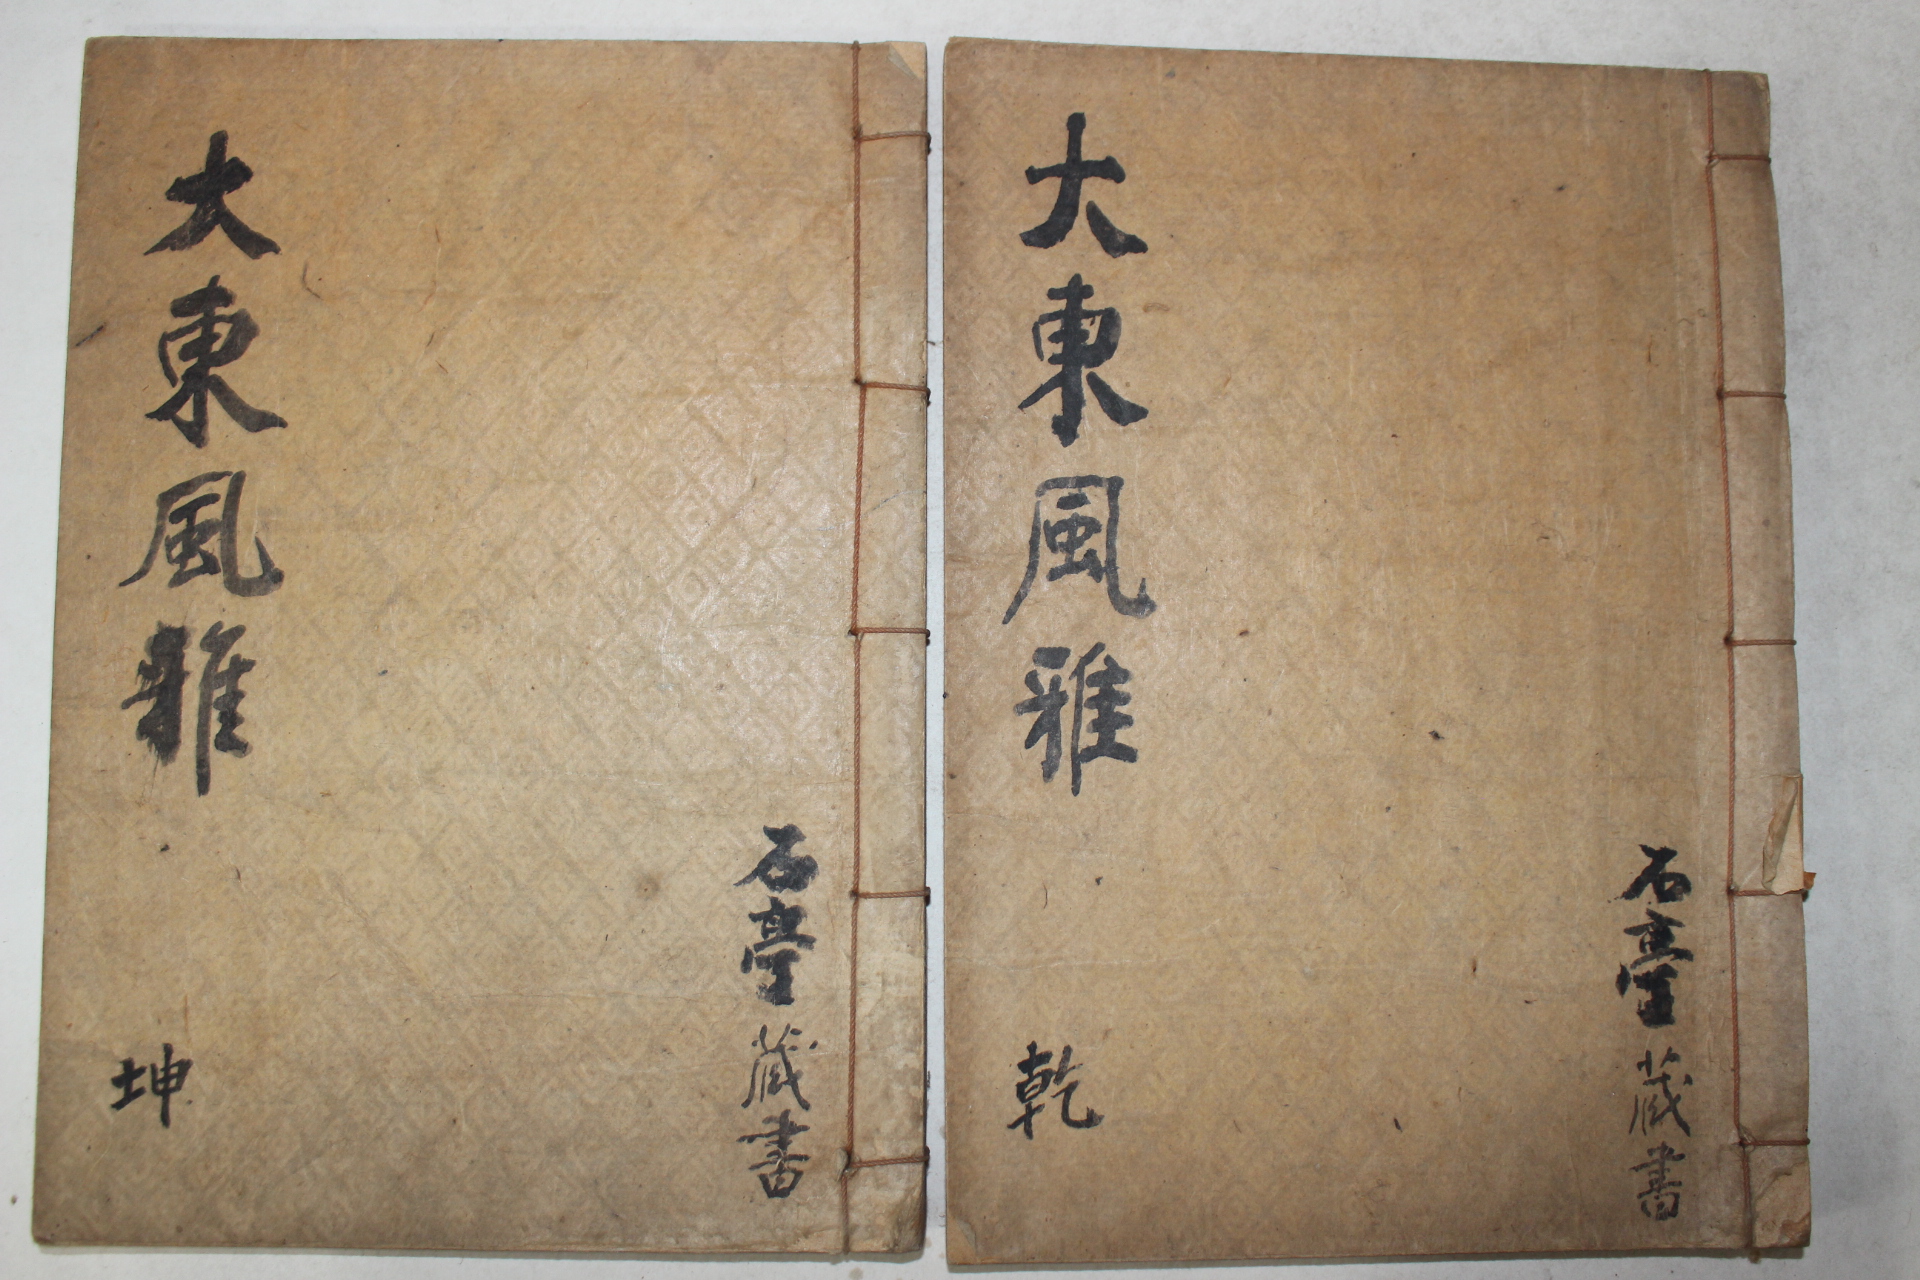 石臺藏書
大東風雅
乾
石臺藏書
大東風雅
坤